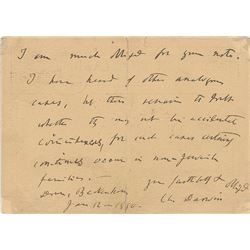 I am much obliged for your note.
I have heard of other analogous
cases, but there remains to doubt
whether they may not be accidental
coincidences, for such cases certainly
sometimes occur in non-Jewish
families.— yours faithfully & obliged
Down, Beckenham Ch. Darwin
Jan. 12 — 1880.